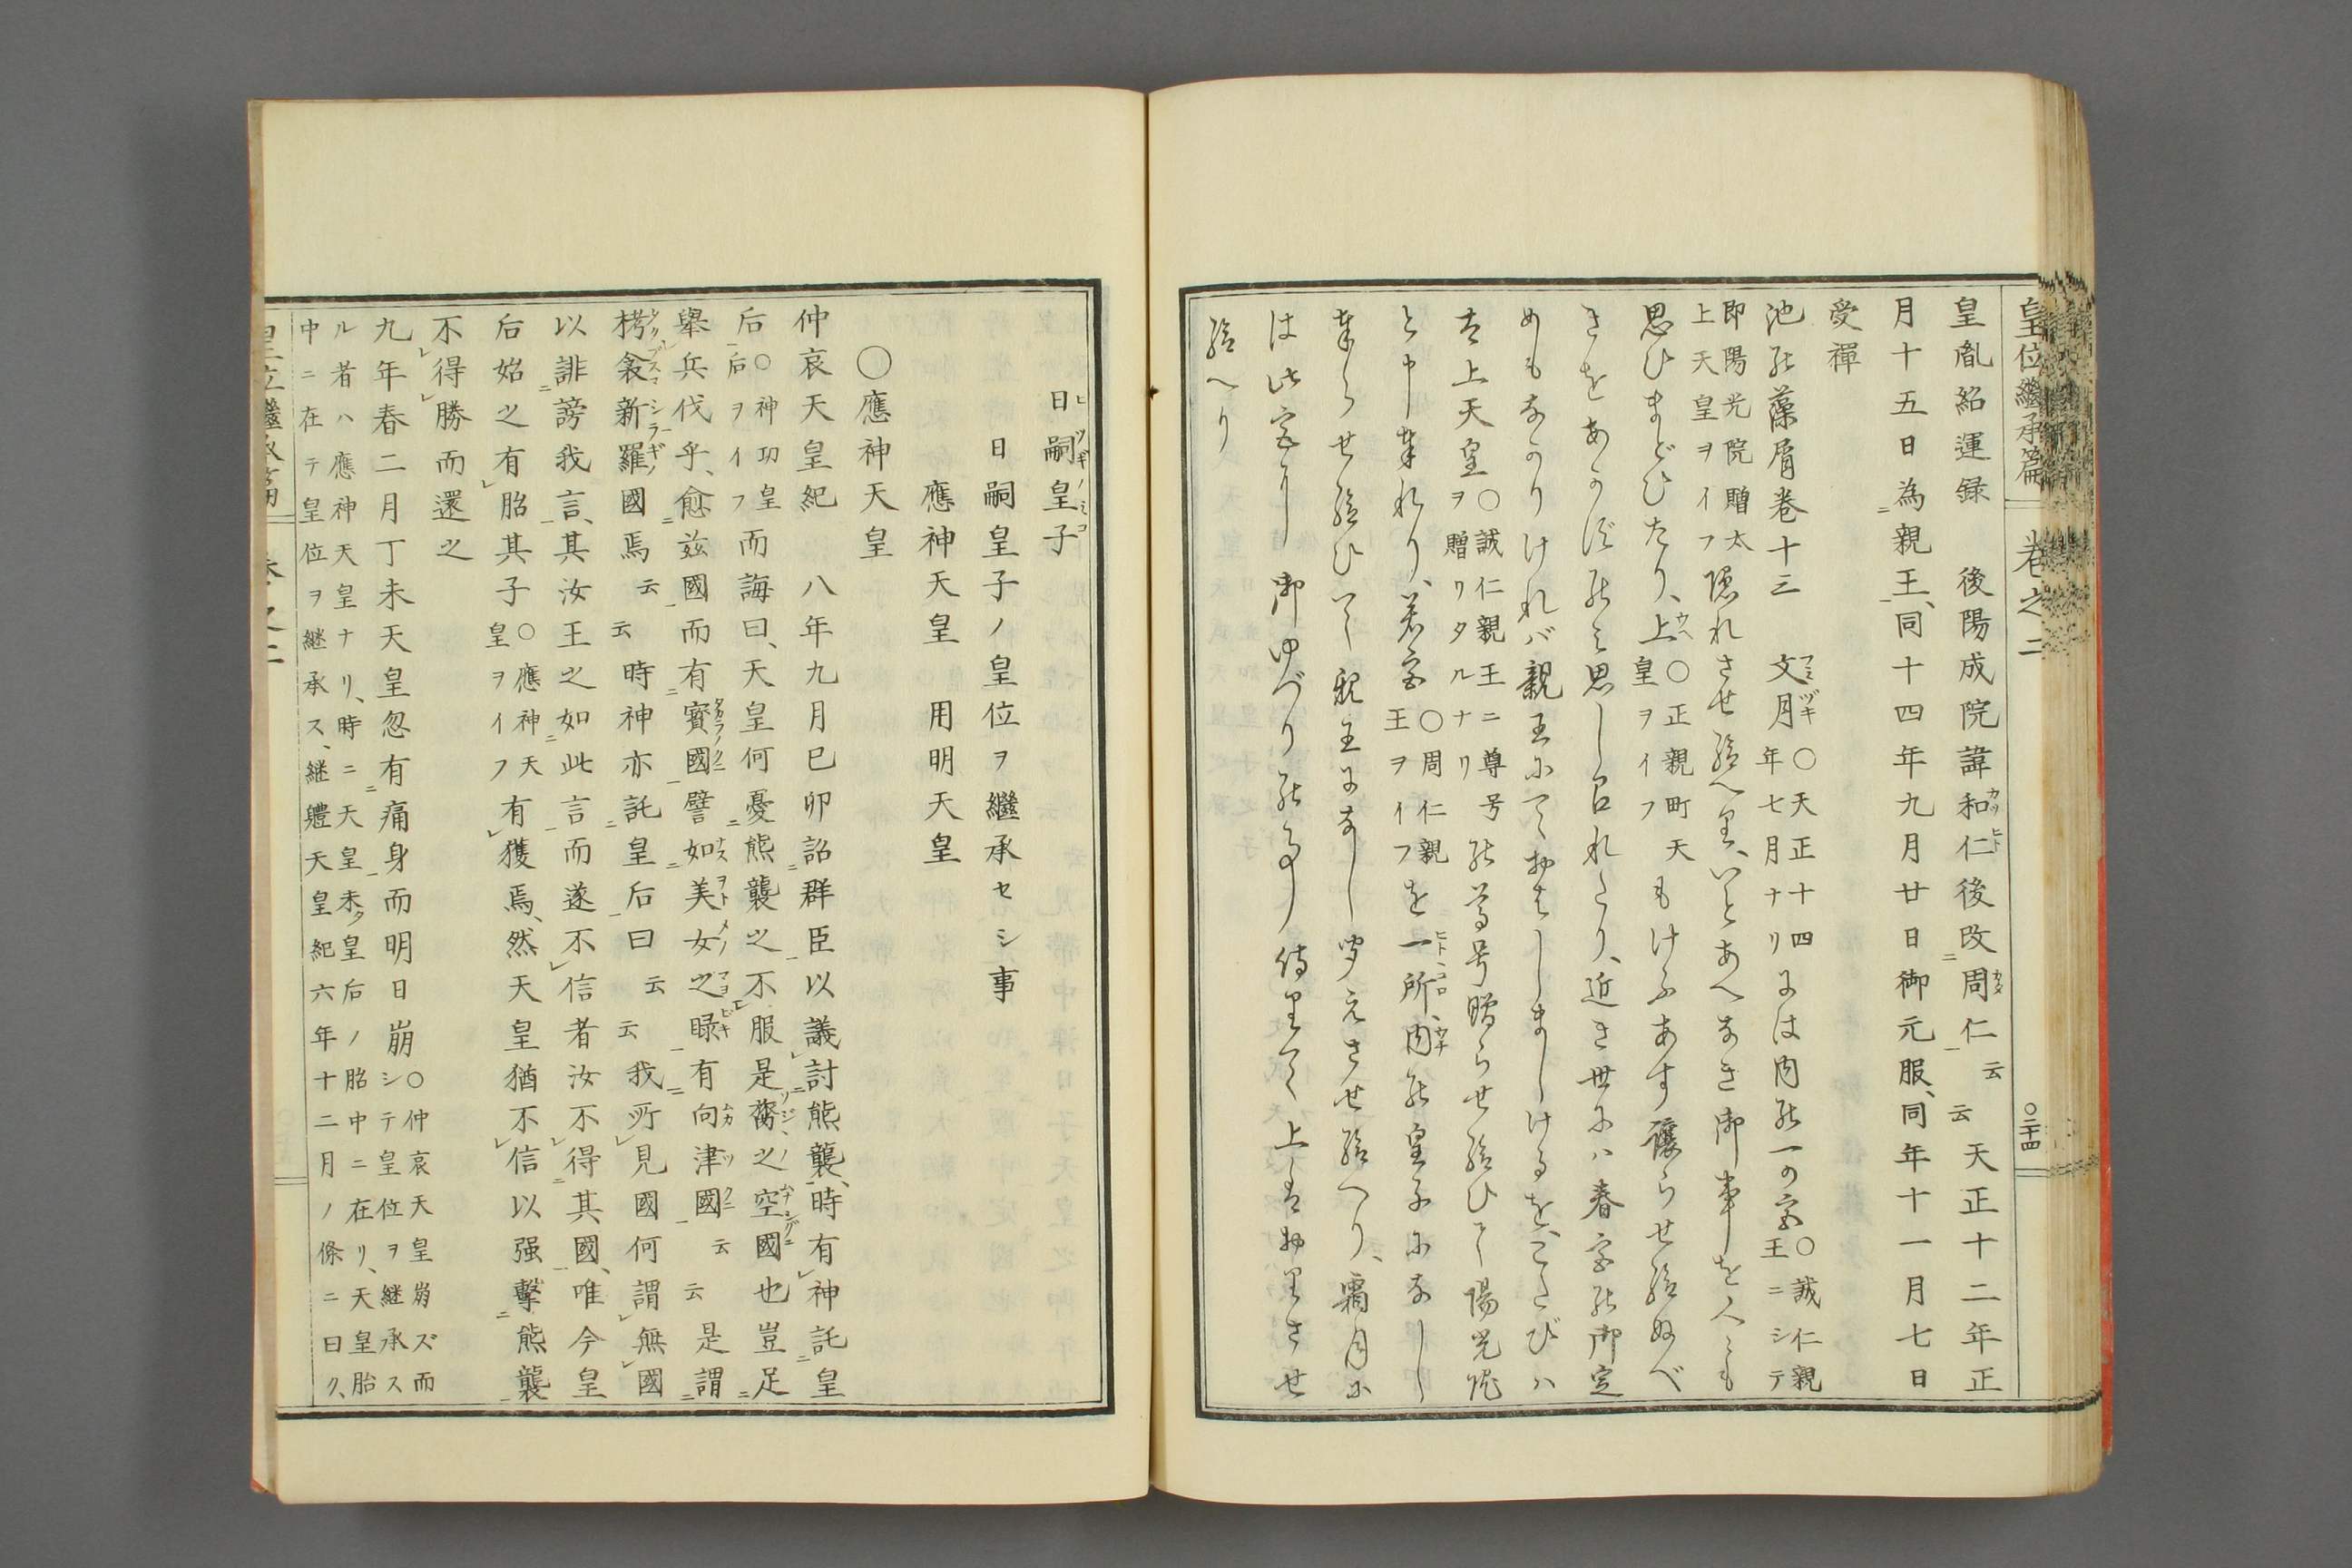 皇位繼承篇 卷之二 ○二十四
皇胤紹運録 後陽成院諱和仁後改周仁云云天正十二年正
月十五日為親王、同十四年九月廿日御元服、同年十一月七日
受禪
池能藻屑卷十三 文月○天正十四年七月ナリには内能一の宮○誠仁親王ニシテ
即陽光院贈太上天皇ヲイフ隠れさせ給へ里、いとあへなき御事を人々も
思ひまどひたり、上○正親町天皇ヲイフもけふあす譲らせ給ぬべ
きをあらば能み思し召れたり、近き世にハ春宮能御定
めもなかりけれバ親王にておはしましけるを、こたびハ
太上天皇○誠仁親王ニ尊号ヲ贈リタルナリ能尊号贈らせ給ひて陽光院
と申奉れり、若宮○周仁親王ヲイフを一所、内能皇子になし
奉らせ給ひて親王になし聞えさせ給へり、霜月に
は此宮に御ゆづり能事侍里て上はおりさせ
給へり
日嗣皇子
日嗣皇子ノ皇位ヲ繼承セシ事
應神天皇 用明天皇
○應神天皇
仲哀天皇紀 八年九月己卯詔群臣以議討熊襲、時有神託皇
后○神功皇后ヲイフ而誨曰、天皇何憂熊襲之不服是膂之空國也豈足
舉兵伐乎、愈茲國而有寶國譬如美女之睩有向津國云云是謂
栲衾新羅國焉云云時神亦託皇后曰云云我所見國何謂無國
以誹謗我言、其汝王之如此言而遂不信者汝不得其國、唯今皇
后始之有胎其子○應神天皇ヲイフ有獲焉、然天皇猶不信以强擊熊襲
不得勝而還之
九年春二月丁未天皇忽有痛身而明日崩○仲哀天皇崩ズ而シテ皇位ヲ継承ス
ル者ハ應神天皇ナリ、時ニ天皇未ダ皇后ノ胎中ニ在リ、天皇胎
中ニ在テ皇位ヲ継承ス、継軆天皇紀六年十二月ノ條ニ曰ク、